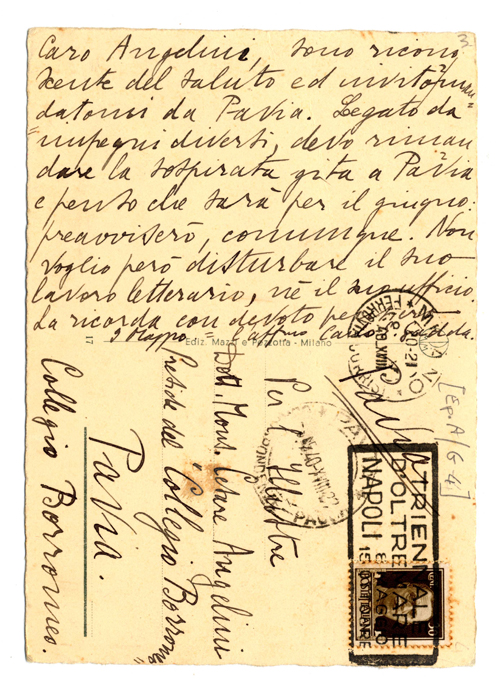 3
Caro Angelini, sono ricono
scente del saluto ed invito man=
datomi da Pavia. Legato da
impegni diversi, devo riman
dare la sospirata gita a Pavia
e penso che sarà per il giugno:
preavviserò, comunque. Non
voglio però disturbare il suo
lavoro letterario, nè il suo ufficio.
La ricorda con devoto
Suo Carlo
17 Ediz. Mazza e Pozzotta - Milano
MILANO
FERROVIA
40.XVIII
[Ep. A/G 4]
Per l'Illustre
Dott. Mons. Cesare Angelini
Preside del Collegio Borromeo
Pavia.
Collegio Borromeo.
PAVIA
I TRIENNALE
D'OLTREMARE
NAPOLI
8 MAGGIO
15 OTTOBRE